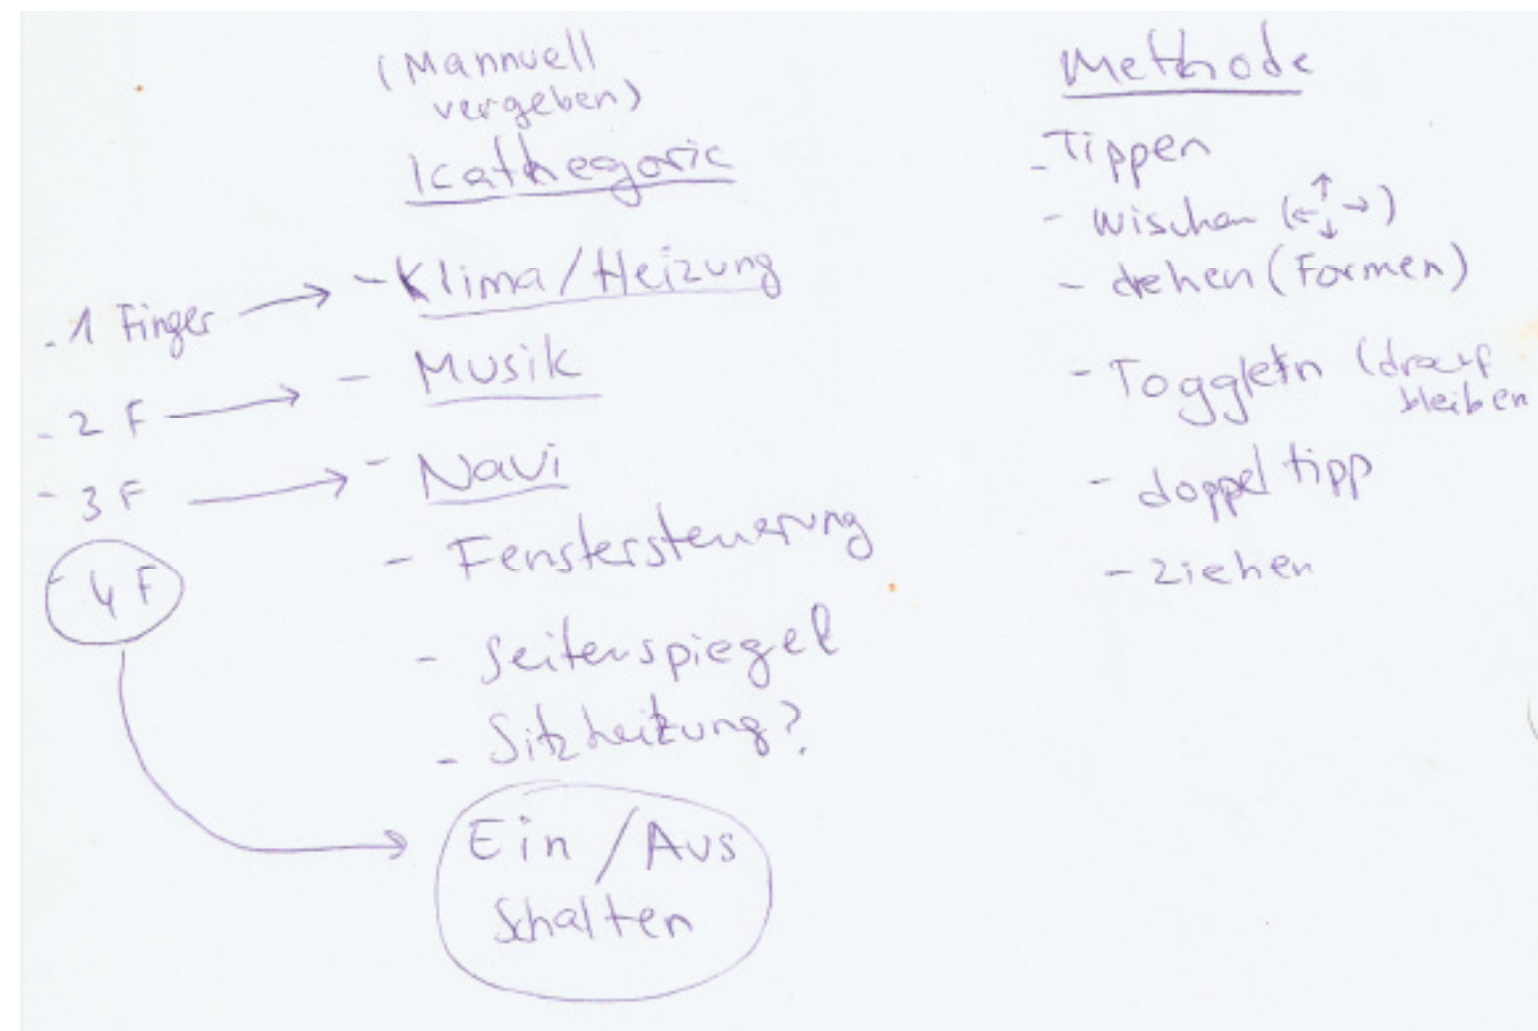 (Mannuell
vergeben)
Kathegorie
- 1 Finger → - Klima/Heizung
- 2 F → - Musik
- 3 F → - Navi
- 4 F
- Fenstersteuerung
- Seitenspiegel
- Sitzheitzung?
Ein / Aus
Schalten
Methode
- Tippen
- wischen (←↑↓→)
- drehen (Formen)
- Toggletn (drauf
bleiben
- doppel tipp
- ziehen